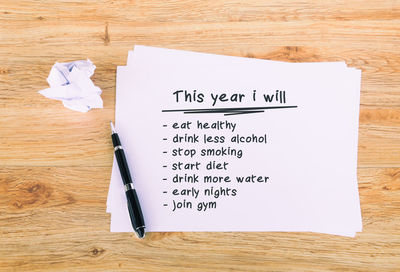 This year i will
- eat healthy
- drink less alcohol
- stop smoking
- start diet
- drink more water
- early nights
- join gym